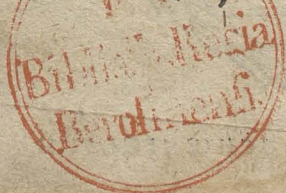 Biblioth. Regia
Berolinensi.